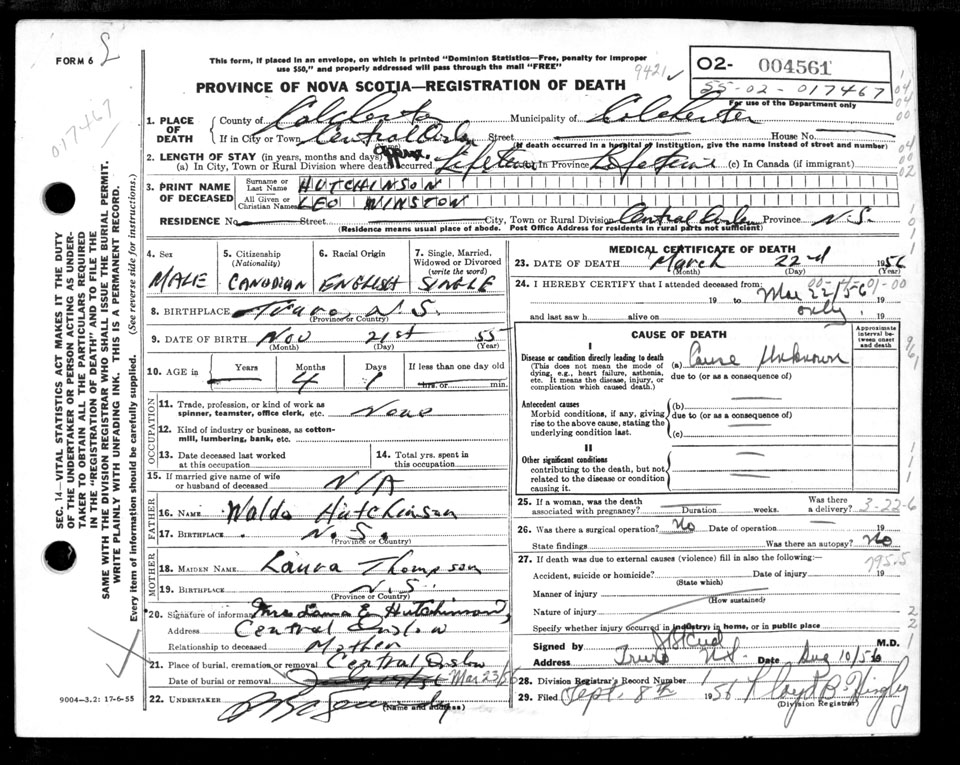 FORM 6
This form, if placed in an envelope, on which is printed "Dominion Statistics—Free, penalty for improper
use $50," and properly addressed will pass through the mail "FREE"
9421
02- 004561
SS-02-017467
For use of the Department only
PROVINCE OF NOVA SCOTIA—REGISTRATION OF DEATH
017467
1. PLACE OF DEATH
County of Colchester Municipality of Colchester
If in City or Town Central Onslow Street House No.
(If death occurred in a hospital or institution, give the name instead of street and number)
2. LENGTH OF STAY (in years, months and days)
(a) In City, Town or Rural Division where death occurred. Lifetime In Province Lifetime (c) In Canada (if immigrant)
3. PRINT NAME OF DECEASED
Surname or Last Name HUTCHINSON
All Given or Christian Names LEO WINSTON
RESIDENCE No. Street City, Town or Rural Division Central Onslow Province N.S.
(Residence means usual place of abode. Post Office Address for residents in rural parts not sufficient)
4. Sex MALE
5. Citizenship (Nationality) CANADIAN
6. Racial Origin ENGLISH
7. Single, Married, Widowed or Divorced (write the word) SINGLE
8. BIRTHPLACE Truro, N.S.
(Province or Country)
9. DATE OF BIRTH Nov 21st 55
(Month) (Day) (Year)
10. AGE in Years Months 4 Days 1 If less than one day old
hrs. or min.
OCCUPATION
11. Trade, profession, or kind of work as spinner, teamster, office clerk, etc. None
12. Kind of industry or business, as cotton-mill, lumbering, bank, etc.
13. Date deceased last worked at this occupation
14. Total yrs. spent in this occupation
15. If married give name of wife or husband of deceased N/A
FATHER
16. NAME Waldo Hutchinson
17. BIRTHPLACE N.S.
(Province or Country)
MOTHER
18. MAIDEN NAME Laura Thompson
19. BIRTHPLACE N.S.
(Province or Country)
20. Signature of informant Mrs Laura E. Hutchinson,
Address Central Onslow
Relationship to deceased Mother
21. Place of burial, cremation or removal Central Onslow
Date of burial or removal Mar 23/56
22. UNDERTAKER
(Name and address)
MEDICAL CERTIFICATE OF DEATH
23. DATE OF DEATH March 22nd 1956
(Month) (Day) (Year)
24. I HEREBY CERTIFY that I attended deceased from:
19 to Mar 22/56 19
and last saw h alive on only. 19
CAUSE OF DEATH
Approximate interval between onset and death
I
Disease or condition directly leading to death
(This does not mean the mode of dying, e.g., heart failure, asthenia, etc. It means the disease, injury, or complication which caused death.)
(a) Cause Unknown
due to (or as a consequence of)
Antecedent causes
Morbid conditions, if any, giving rise to the above cause, stating the underlying condition last.
(b)
due to (or as a consequence of)
(c)
II
Other significant conditions
contributing to the death, but not related to the disease or condition causing it.
25. If a woman, was the death associated with pregnancy? Duration weeks. Was there a delivery? 3-22-6
26. Was there a surgical operation? No Date of operation 19
State findings Was there an autopsy? No
27. If death was due to external causes (violence) fill in also the following: 795.5
Accident, suicide or homicide? Date of injury 19
(State which)
Manner of injury
(How sustained)
Nature of injury
Specify whether injury occurred in industry, in home, or in public place
Signed by M.D.
Address Truro N.S. Date Aug 10/56
28. Division Registrar's Record Number
29. Filed Sept. 8th 1956
(Division Registrar)
SEC. 14—VITAL STATISTICS ACT MAKES IT THE DUTY
OF THE UNDERTAKER OR PERSON ACTING AS UNDER-
TAKER TO OBTAIN ALL THE PARTICULARS REQUIRED
IN THE "REGISTRATION OF DEATH" AND TO FILE THE
SAME WITH THE DIVISION REGISTRAR WHO SHALL ISSUE THE BURIAL PERMIT.
WRITE PLAINLY WITH UNFADING INK. THIS IS A PERMANENT RECORD.
Every item of information should be carefully supplied. (See reverse side for instructions.)
9004-3.2: 17-6-55